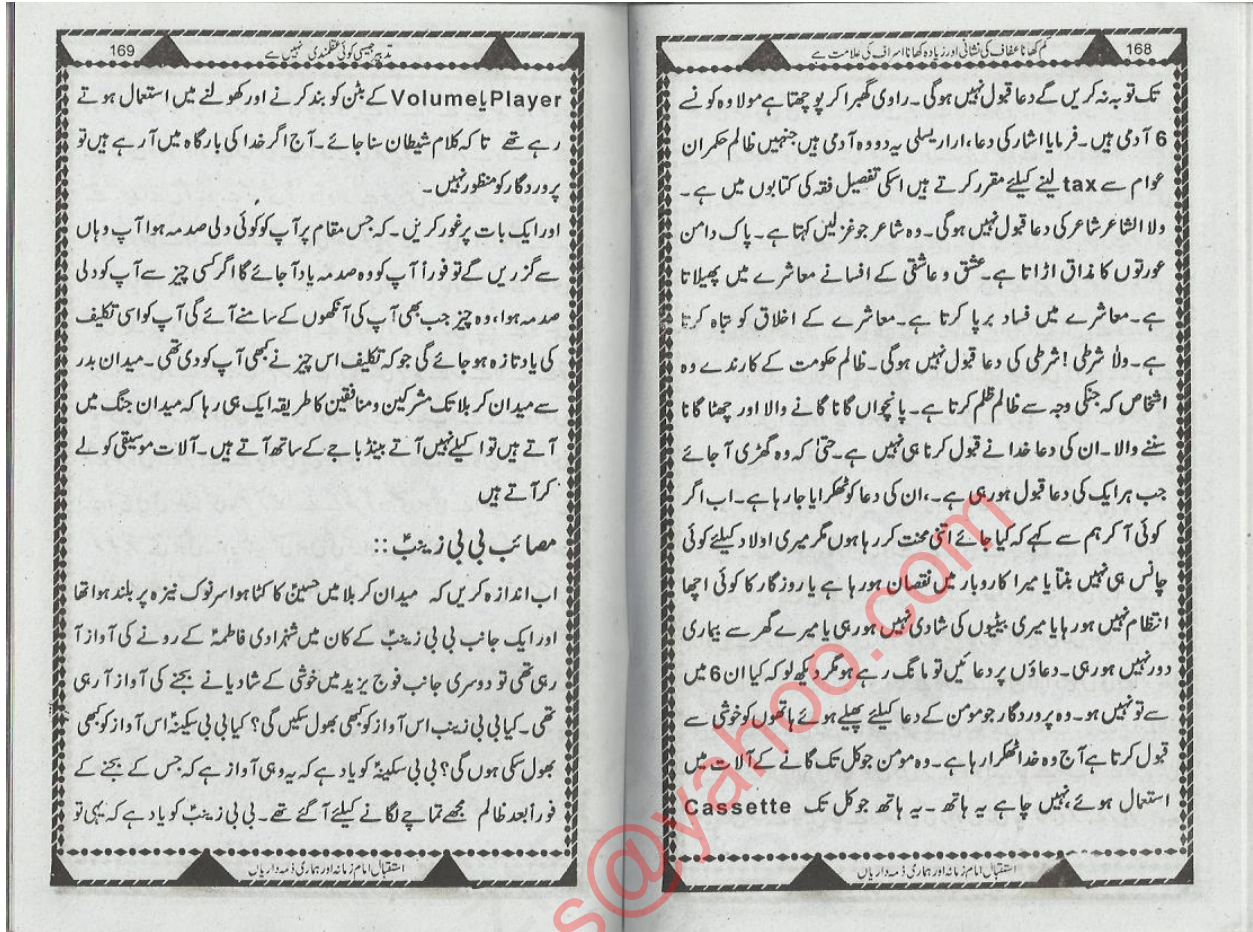 168
کم کھانا عفاف کی نشانی اور زیادہ کھانا اسراف کی علامت ہے
تک توبہ نہ کریں گے دعا قبول نہیں ہوگی۔ راوی گھبرا کر پوچھتا ہے مولا وہ کونسے
6 آدمی ہیں۔ فرمایا اشار کی دعا، ارار یسلی یہ دو وہ آدمی ہیں جنہیں ظالم حکمران
عوام سے tax لینے کیلئے مقرر کرتے ہیں اسکی تفصیل فقہ کی کتابوں میں ہے۔
ولا الشاعر شاعر کی دعا قبول نہیں ہوگی۔ وہ شاعر جو غزلیں کہتا ہے۔ پاک دامن
عورتوں کا مذاق اڑاتا ہے۔ عشق و عاشقی کے افسانے معاشرے میں پھیلاتا
ہے۔ معاشرے میں فساد برپا کرتا ہے۔ معاشرے کے اخلاق کو تباہ کرتا
ہے۔ ولا شرطی! شرطی کی دعا قبول نہیں ہوگی۔ ظالم حکومت کے کارندے وہ
اشخاص کہ جنکی وجہ سے ظالم ظلم کرتا ہے۔ پانچواں گانا گانے والا اور چھٹا گانا
سننے والا۔ ان کی دعا خدا نے قبول کرنا ہی نہیں ہے۔ حتیٰ کہ وہ گھڑی آ جائے
جب ہر ایک کی دعا قبول ہو رہی ہے۔، ان کی دعا کو ٹھکرایا جا رہا ہے۔ اب اگر
کوئی آ کر ہم سے کہے کہ کیا جائے اتنی محنت کر رہا ہوں مگر میری اولاد کیلئے کوئی
چانس ہی نہیں بنتا یا میرا کاروبار میں نقصان ہو رہا ہے یا روزگار کا کوئی اچھا
انتظام نہیں ہو رہا یا میری بیٹیوں کی شادی نہیں ہو رہی یا میرے گھر سے بیماری
دور نہیں ہو رہی۔ دعاؤں پر دعائیں تو مانگ رہے ہو مگر دیکھ لو کہ کیا ان 6 میں
سے تو نہیں ہو۔ وہ پروردگار جو مومن کے دعا کیلئے پھیلے ہوئے ہاتھوں کو خوشی سے
قبول کرتا ہے آج وہ خدا ٹھکرا رہا ہے۔ وہ مومن جو کل تک گانے کے آلات میں
استعمال ہوئے، نہیں چاہے یہ ہاتھ۔ یہ ہاتھ جو کل تک Cassette
استقبال امام زمانہ اور ہماری ذمہ داریاں
169
تدبیر جیسی کوئی عقلمندی نہیں ہے
Player یا Volume کے بٹن کو بند کرنے اور کھولنے میں استعمال ہوتے
رہے تھے تاکہ کلام شیطان سنا جائے۔ آج اگر خدا کی بارگاہ میں آ رہے ہیں تو
پروردگار کو منظور نہیں۔
اور ایک بات پر غور کریں۔ کہ جس مقام پر آپ کو کوئی دلی صدمہ ہوا آپ وہاں
سے گزریں گے تو فوراً آپ کو وہ صدمہ یاد آ جائے گا اگر کسی چیز سے آپ کو دلی
صدمہ ہوا، وہ چیز جب بھی آپ کی آنکھوں کے سامنے آئے گی آپ کو اسی تکلیف
کی یاد تازہ ہو جائے گی جو کہ تکلیف اس چیز نے کبھی آپ کو دی تھی۔ میدان بدر
سے میدان کربلا تک مشرکین و منافقین کا طریقہ ایک ہی رہا کہ میدان جنگ میں
آتے ہیں تو اکیلے نہیں آتے بینڈ باجے کے ساتھ آتے ہیں۔ آلات موسیقی کو لے
کر آتے ہیں
مصائب بی بی زینبؑ ::
اب اندازہ کریں کہ میدان کربلا میں حسینؑ کا کٹا ہوا سر نوک نیزہ پر بلند ہوا تھا
اور ایک جانب بی بی زینبؑ کے کان میں شہزادی فاطمہؑ کے رونے کی آواز آ
رہی تھی تو دوسری جانب فوج یزید میں خوشی کے شادیانے بجنے کی آواز آ رہی
تھی۔ کیا بی بی زینب اس آواز کو کبھی بھول سکیں گی؟ کیا بی بی سکینہؑ اس آواز کو کبھی
بھول سکی ہوں گی؟ بی بی سکینہؑ کو یاد ہے کہ یہ وہی آواز ہے کہ جس کے بجنے کے
فوراً بعد ظالم مجھے تماچے لگانے کیلئے آ گئے تھے۔ بی بی زینبؑ کو یاد ہے کہ یہی تو
استقبال امام زمانہ اور ہماری ذمہ داریاں
s@yahoo.com